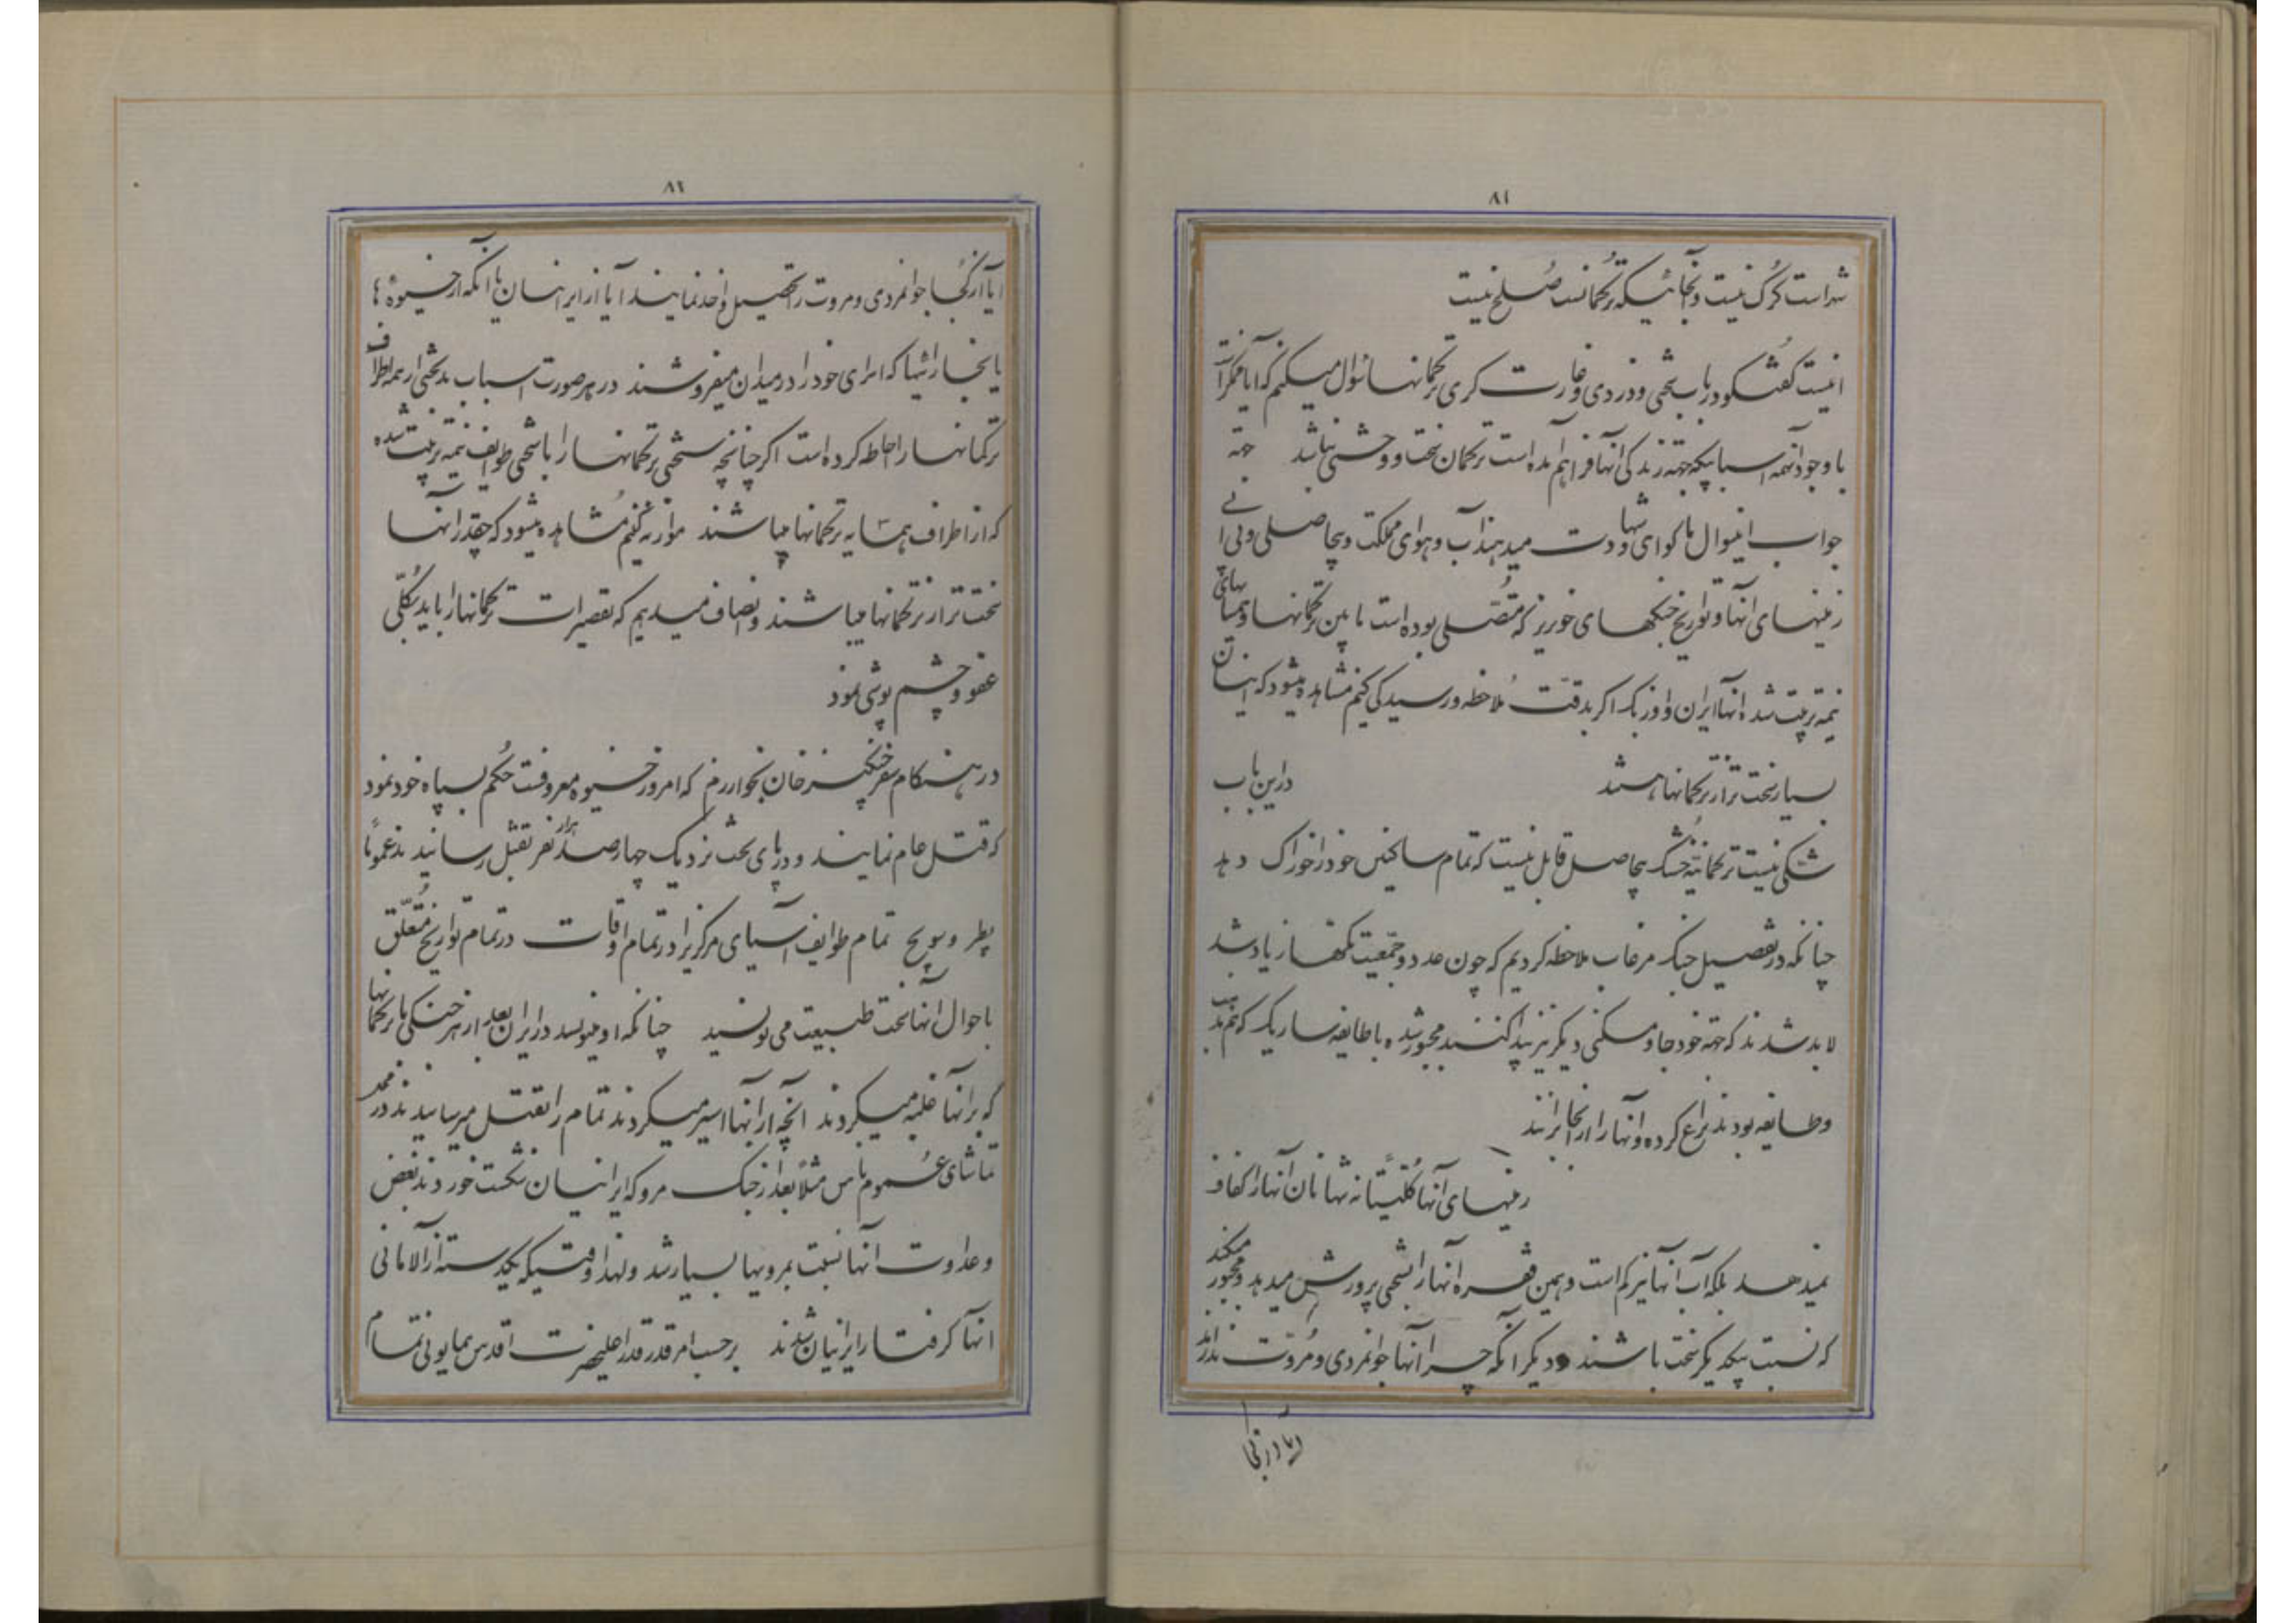 ۸۱
شهر است گرگ نیست و آنجائیکه ترکمانست صلح نیست
اینست گفتگو در باب سختی و دزدی و غارت گری ترکمانها سئوال میکنم که آیا ممکن
با وجود آنهمه اسبابیکه جهة زندگی آنها فراهم آمده است ترکمان سخت و وحشی نباشد جهة
جواب اینسوال ما گواهی و شهادت میدهند آب و هوای مملکت و بیحاصلی و بی آبی
زمینهای آنها و تواریخ جنگهای خونریز که متصلی بوده است مابین ترکمانها و همسایهای
نیمه تربیت شده آنها ایران و اوزبک اگر بدقت ملاحظه و رسیدگی کنیم مشاهده میشود که اینان
بسیار سخت تر از ترکمانها هستند در این باب
شکی نیست ترکمانیه خشک بیحاصل قابل نیست که تمام ساکنین خود را خوراک دهد
چنانکه در تفصیل جنگ مرغاب ملاحظه کردیم که چون عدد و جمعیت تکه‌ها زیاد شد
لابد شدند که جهة خود جا و مسکنی دیگر نیز پیدا کنند مجبور شده با طایفه ساریک که هم مذهب
و طایفه بودند نزاع کرده و آنها را از آنجا برانند
زمینهای آنها کلیتا نه تنها نان آنها را کفاف
نمیدهد بلکه آب آنها نیز کم است و همین فقره آنها را بسختی پرورش میدهد و مجبور میکند
که نسبت بیکدیگر سخت باشند و دیگر آنکه چرا آنها جوانمردی و مروت ندارند
۸۲
آیا از کجا جوانمردی و مروت را تحصیل و اخذ نمایند آیا از ایرانیان یا آنکه از خیوه‌ها
یا بخارائیها که اسرای خود را در میدان میفروشند در هر صورت اسباب بدبختی از همه اطراف
ترکمانها را احاطه کرده است اگر چنانچه سختی ترکمانها را با سختی طوایف نیمه تربیت شده
که از اطراف همسایه ترکمانها میباشند موازنه کنیم مشاهده میشود که چقدر آنها
سخت تر از ترکمانها میباشند و انصاف میدهیم که تقصیرات ترکمانها را باید بکلی
عفو و چشم پوشی نمود
در هنگام سفر چنگیز خان بخوارزم که امروز خیوه معروفست حکم بسپاه خود نمود
که قتل عام نمایند و در پای تخت نزدیک چهار صد هزار نفر بقتل رسانیدند عموما
پطر وسویج تمام طوایف آسیای مرکزیرا در تمام اوقات در تمام تواریخ متعلق
باحوال آنها سخت طبیعت می نویسد چنانکه او مینویسد در ایران بعد از هر جنگی با ترکمانها
که بر آنها غلبه میکردند آنچه از آنها اسیر میکردند تمام را بقتل میرسانیدند در محضر
تماشای عموم ناس مثلاً بعد از جنگ مرو که ایرانیان شکست خوردند بغض
و عداوت آنها نسبت بمرویها بسیار شد و لهذا وقتیکه یکدسته از آلامانی
آنها گرفتار ایرانیان شدند بر حسب امر قدر قدر اعلیحضرت اقدس همایونی تمام